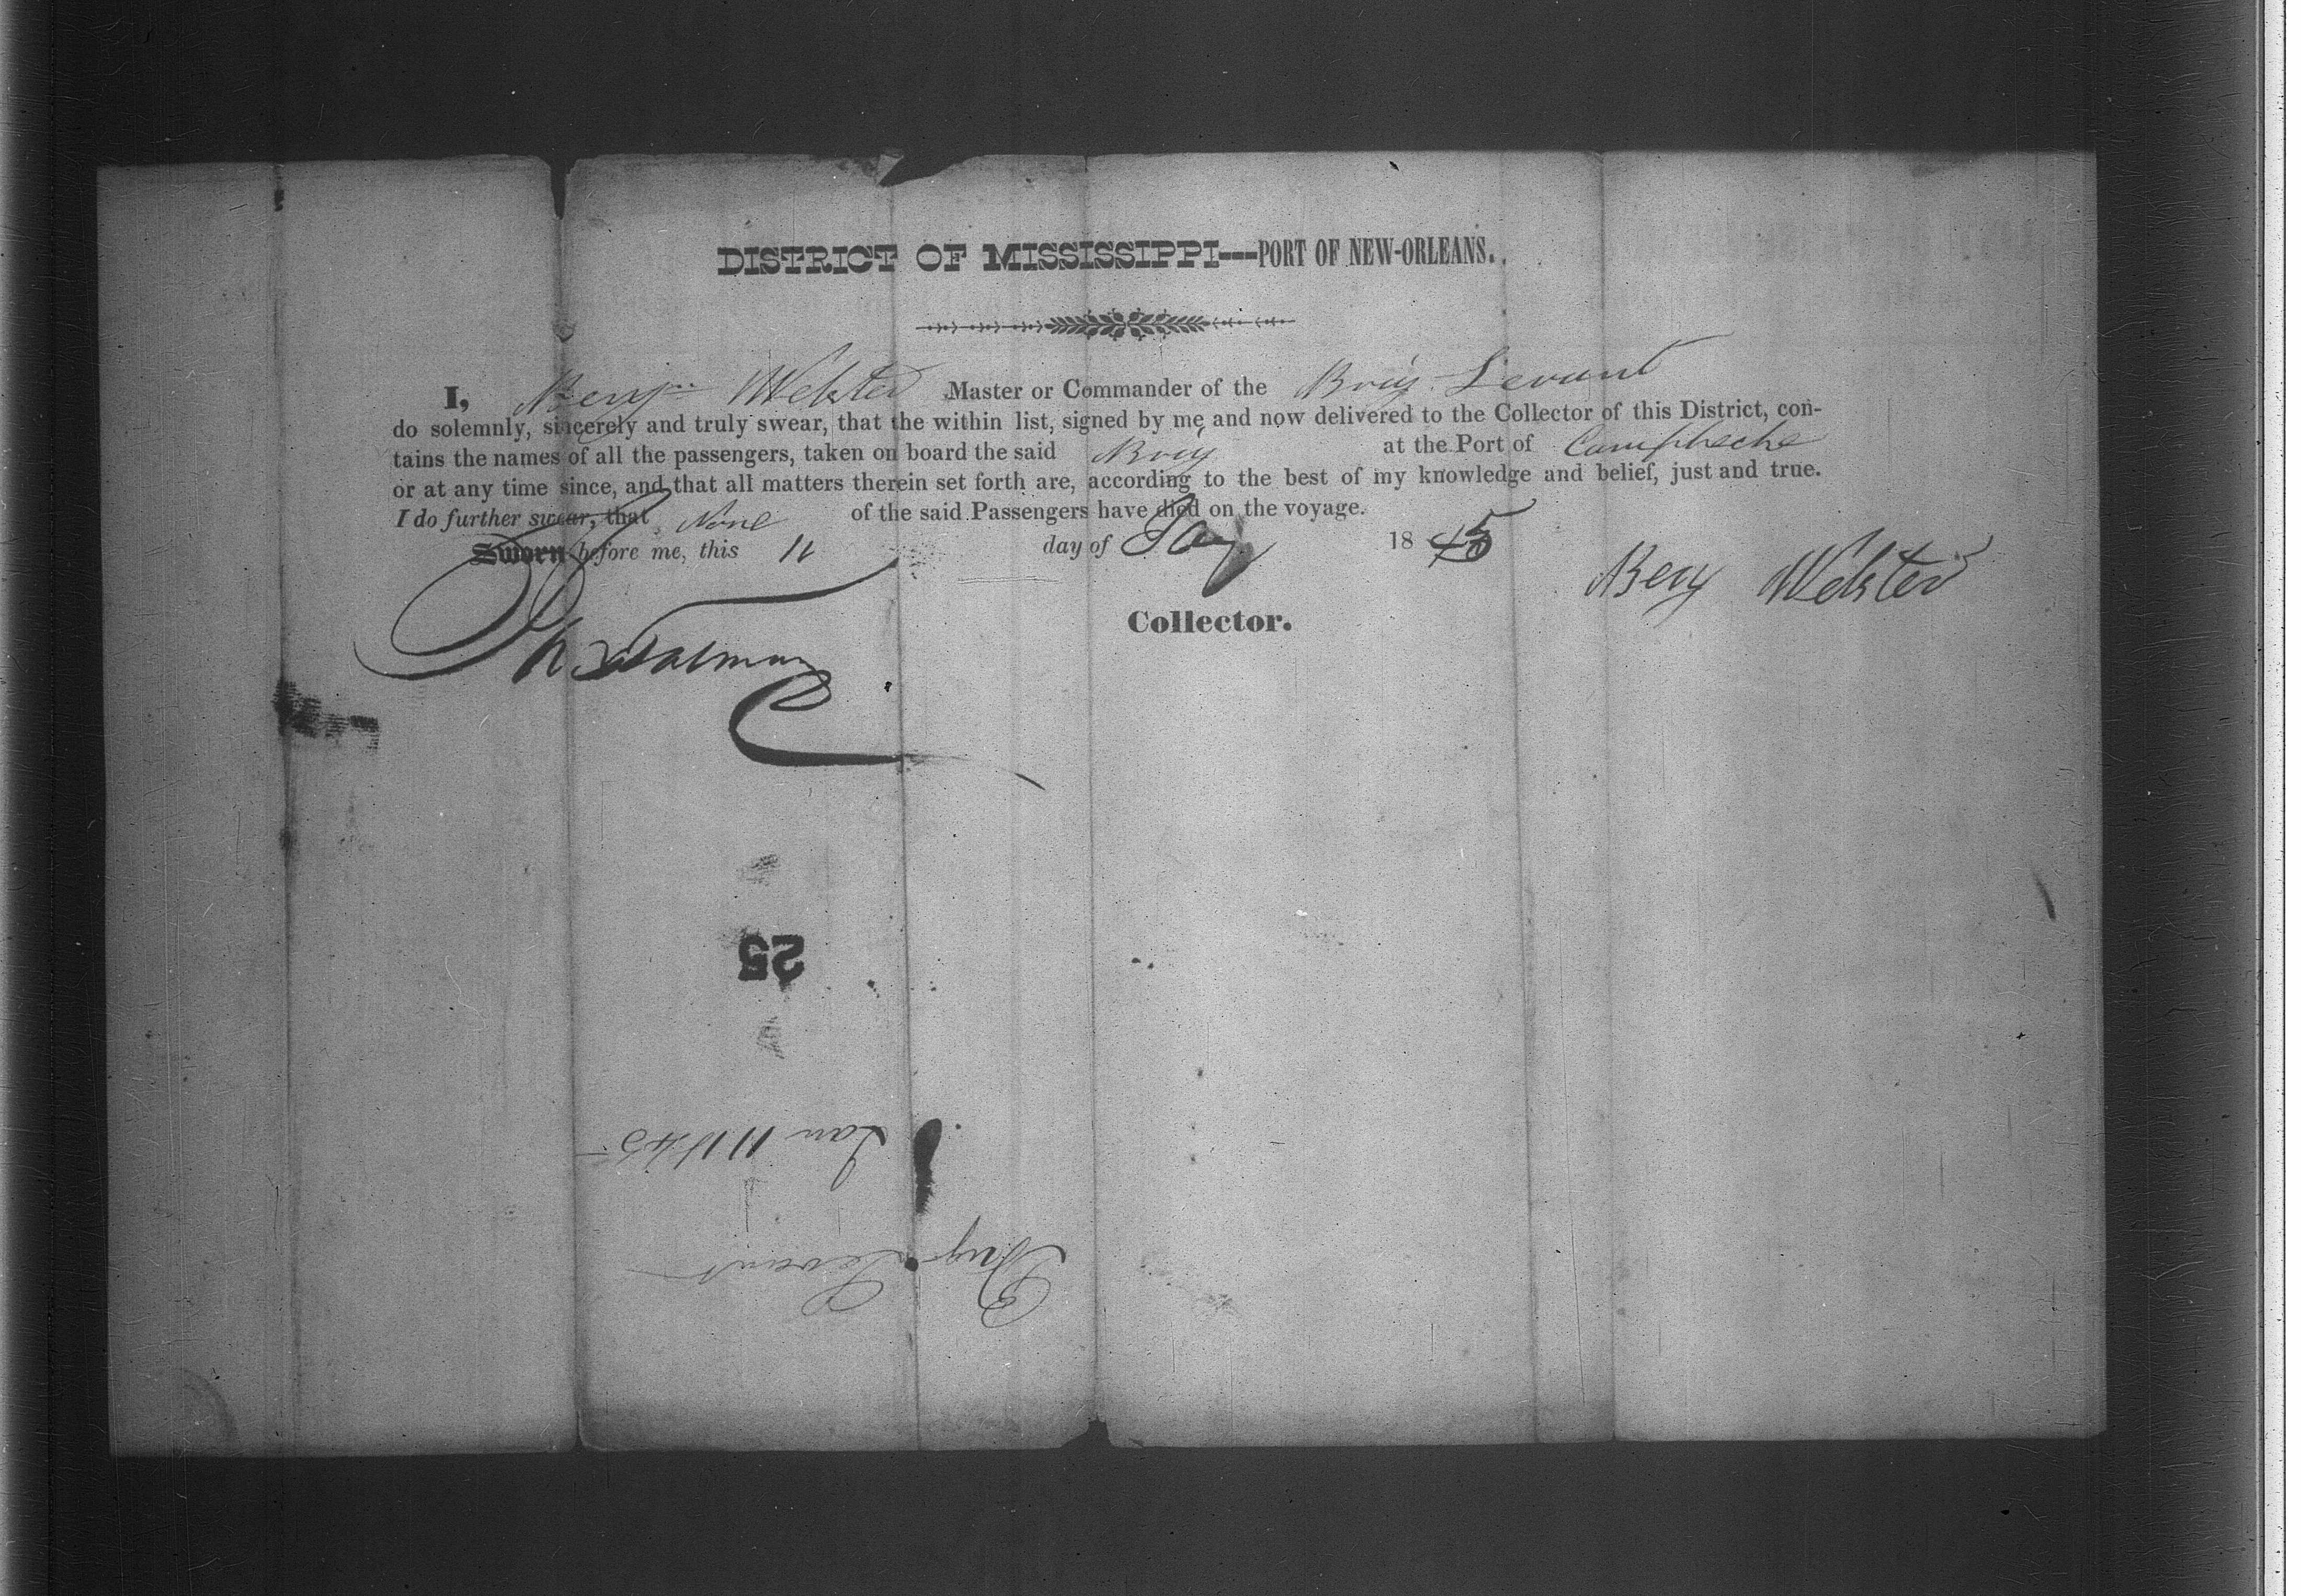 DISTRICT OF MISSISSIPPI---PORT OF NEW-ORLEANS.
I, Benj Webster Master or Commander of the Brig Levant
do solemnly, sincerely and truly swear, that the within list, signed by me and now delivered to the Collector of this District, con-
tains the names of all the passengers, taken on board the said Brig at the Port of Campheche
or at any time since, and that all matters therein set forth are, according to the best of my knowledge and belief, just and true.
I do further swear, that None of the said Passengers have died on the voyage.
Sworn before me, this 11 day of Jany 1845
Benj Webster
Collector.
25
Jan 11 1845
Brig Levant